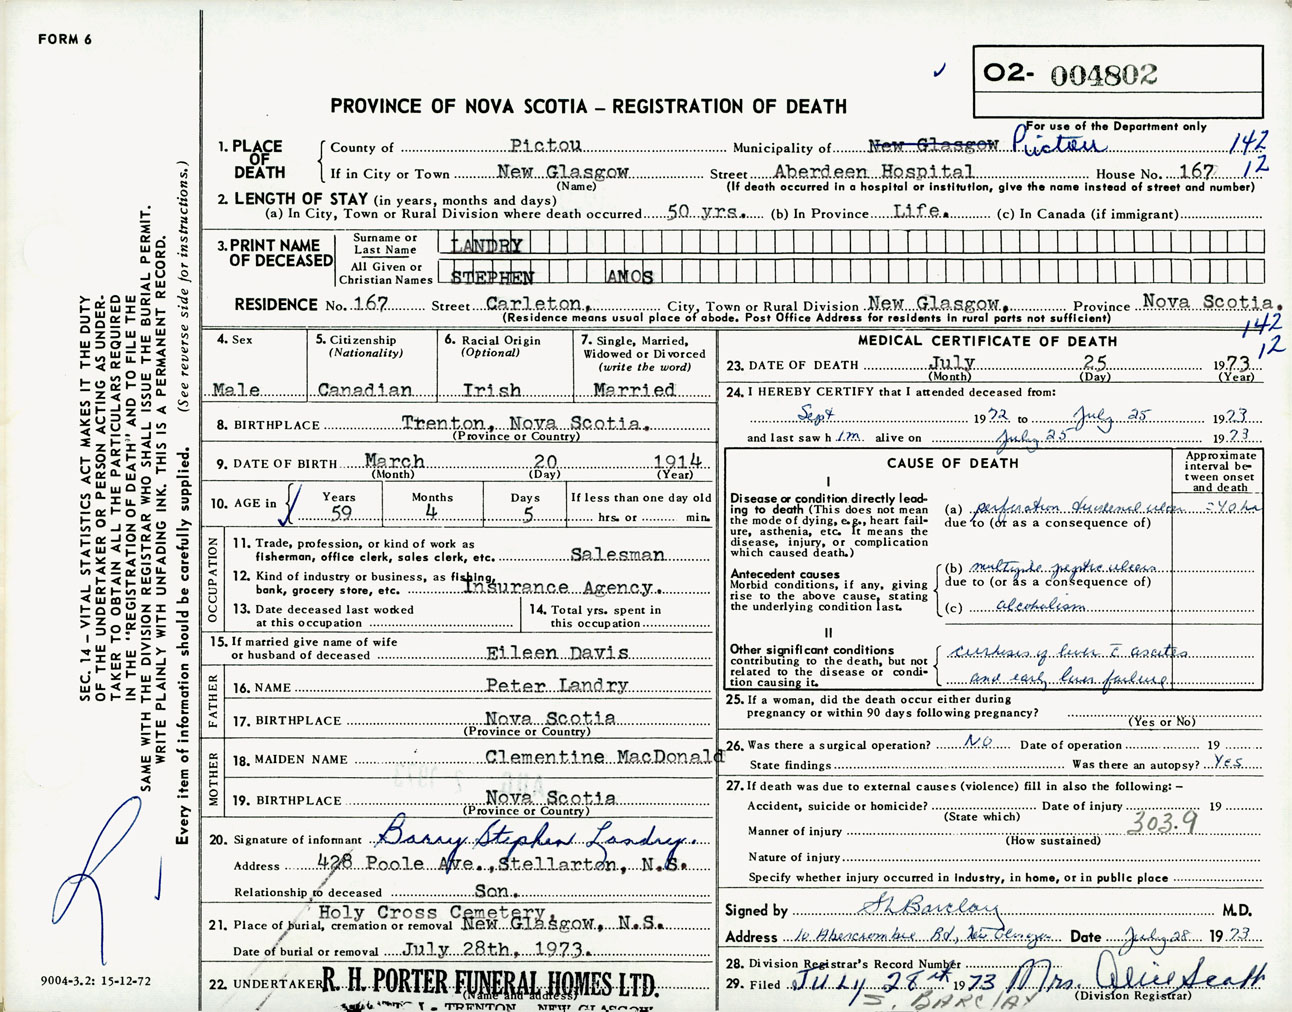 FORM 6
O2- 004802
PROVINCE OF NOVA SCOTIA – REGISTRATION OF DEATH
For use of the Department only
1. PLACE OF DEATH
County of Pictou Municipality of New Glasgow Pictou 142
If in City or Town New Glasgow Street Aberdeen Hospital House No. 167 12
(Name) (If death occurred in a hospital or institution, give the name instead of street and number)
2. LENGTH OF STAY (in years, months and days)
(a) In City, Town or Rural Division where death occurred 50 yrs. (b) In Province Life. (c) In Canada (if immigrant)
3. PRINT NAME OF DECEASED
Surname or Last Name LANDRY
All Given or Christian Names STEPHEN AMOS
RESIDENCE No. 167 Street Carleton, City, Town or Rural Division New Glasgow, Province Nova Scotia.
(Residence means usual place of abode. Post Office Address for residents in rural parts not sufficient)
142
12
4. Sex
Male
5. Citizenship
(Nationality)
Canadian
6. Racial Origin
(Optional)
Irish
7. Single, Married,
Widowed or Divorced
(write the word)
Married
8. BIRTHPLACE Trenton, Nova Scotia.
(Province or Country)
9. DATE OF BIRTH March 20 1914
(Month) (Day) (Year)
10. AGE in
Years Months Days If less than one day old
59 4 5 hrs. or min.
OCCUPATION
11. Trade, profession, or kind of work as
fisherman, office clerk, sales clerk, etc. Salesman
12. Kind of industry or business, as fishing,
bank, grocery store, etc. Insurance Agency.
13. Date deceased last worked
at this occupation
14. Total yrs. spent in
this occupation
15. If married give name of wife
or husband of deceased Eileen Davis
FATHER
16. NAME Peter Landry
17. BIRTHPLACE Nova Scotia
(Province or Country)
MOTHER
18. MAIDEN NAME Clementine MacDonald
19. BIRTHPLACE Nova Scotia
(Province or Country)
20. Signature of informant Barry Stephen Landry.
Address 428 Poole Ave., Stellarton, N.S.
Relationship to deceased Son.
Holy Cross Cemetery,
21. Place of burial, cremation or removal New Glasgow, N.S.
Date of burial or removal July 28th, 1973.
22. UNDERTAKER R. H. PORTER FUNERAL HOMES LTD.
(Name and address)
TRENTON, NEW GLASGOW
MEDICAL CERTIFICATE OF DEATH
23. DATE OF DEATH July 25 1973
(Month) (Day) (Year)
24. I HEREBY CERTIFY that I attended deceased from:
Sept 1972 to July 25 1973
and last saw h im alive on July 25 1973
CAUSE OF DEATH
Approximate
interval be-
tween onset
and death
I
Disease or condition directly lead-
ing to death (This does not mean
the mode of dying, e.g., heart fail-
ure, asthenia, etc. It means the
disease, injury, or complication
which caused death.)
(a) perforation duodenal ulcer
due to (or as a consequence of)
Antecedent causes
Morbid conditions, if any, giving
rise to the above cause, stating
the underlying condition last.
(b) multiple peptic ulcers
due to (or as a consequence of)
(c) alcoholism
II
Other significant conditions
contributing to the death, but not
related to the disease or condi-
tion causing it.
cirrhosis of liver c ascites
and early liver failure
25. If a woman, did the death occur either during
pregnancy or within 90 days following pregnancy?
(Yes or No)
26. Was there a surgical operation? No Date of operation 19
State findings Was there an autopsy? Yes
27. If death was due to external causes (violence) fill in also the following: –
Accident, suicide or homicide? Date of injury 19
(State which)
303.9
Manner of injury
(How sustained)
Nature of injury
Specify whether injury occurred in industry, in home, or in public place
Signed by Barclay M.D.
Address 10 Abercrombie Rd, New Glasgow Date July 28 1973
28. Division Registrar's Record Number
29. Filed July 28th 1973 Mrs. Alice Scott
(Division Registrar)
S. BARCLAY
SEC. 14 – VITAL STATISTICS ACT MAKES IT THE DUTY
OF THE UNDERTAKER OR PERSON ACTING AS UNDER-
TAKER TO OBTAIN ALL THE PARTICULARS REQUIRED
IN THE "REGISTRATION OF DEATH" AND TO FILE THE
SAME WITH THE DIVISION REGISTRAR WHO SHALL ISSUE THE BURIAL PERMIT.
WRITE PLAINLY WITH UNFADING INK. THIS IS A PERMANENT RECORD.
Every item of information should be carefully supplied. (See reverse side for instructions.)
9004-3.2: 15-12-72